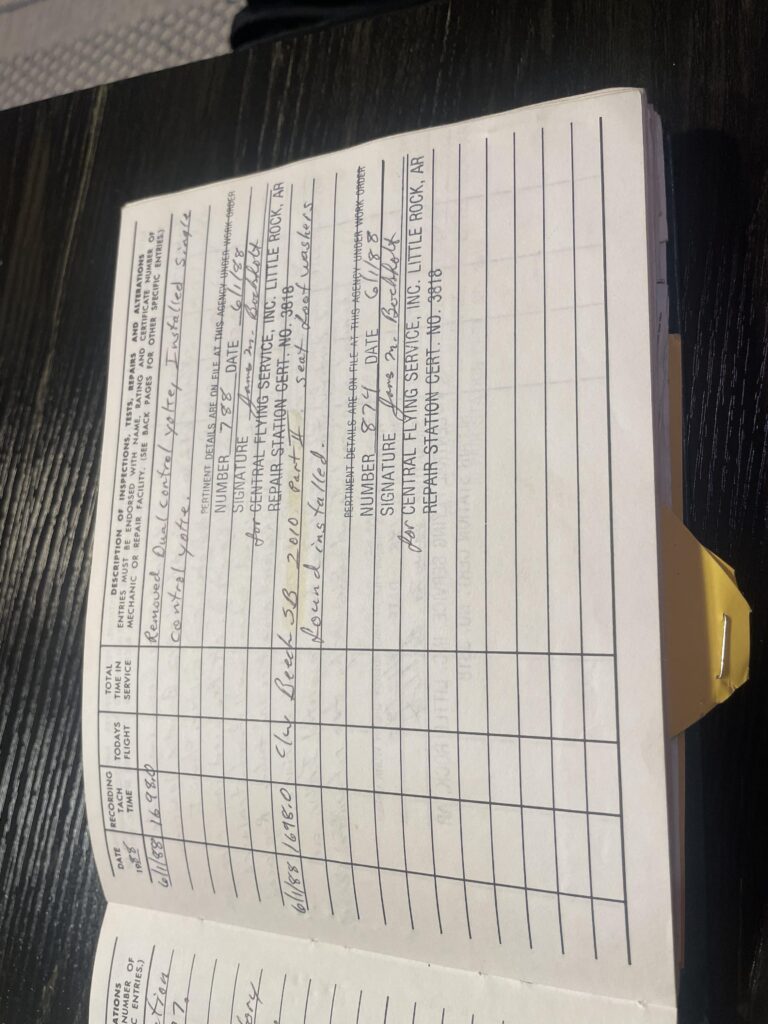 DATE
1988
RECORDING
TACH
TIME
TODAYS
FLIGHT
TOTAL
TIME IN
SERVICE
DESCRIPTION OF INSPECTIONS, TESTS, REPAIRS AND ALTERATIONS
ENTRIES MUST BE ENDORSED WITH NAME, RATING AND CERTIFICATE NUMBER OF
MECHANIC OR REPAIR FACILITY. (SEE BACK PAGES FOR OTHER SPECIFIC ENTRIES.)
6/1/88 1698.0 Removed Dual control yoke, Installed single
control yoke.
PERTINENT DETAILS ARE ON FILE AT THIS AGENCY UNDER WORK ORDER
NUMBER 788 DATE 6/1/88
SIGNATURE James M. Buchholt
for CENTRAL FLYING SERVICE, INC. LITTLE ROCK, AR
REPAIR STATION CERT. NO. 3818
6/1/88 1698.0 C/w Beech SB 2010 Part II seat foot washers
found installed.
PERTINENT DETAILS ARE ON FILE AT THIS AGENCY UNDER WORK ORDER
NUMBER 874 DATE 6/1/88
SIGNATURE James M. Buchholt
for CENTRAL FLYING SERVICE, INC. LITTLE ROCK, AR
REPAIR STATION CERT. NO. 3818
ATIONS
NUMBER OF
C ENTRIES.)